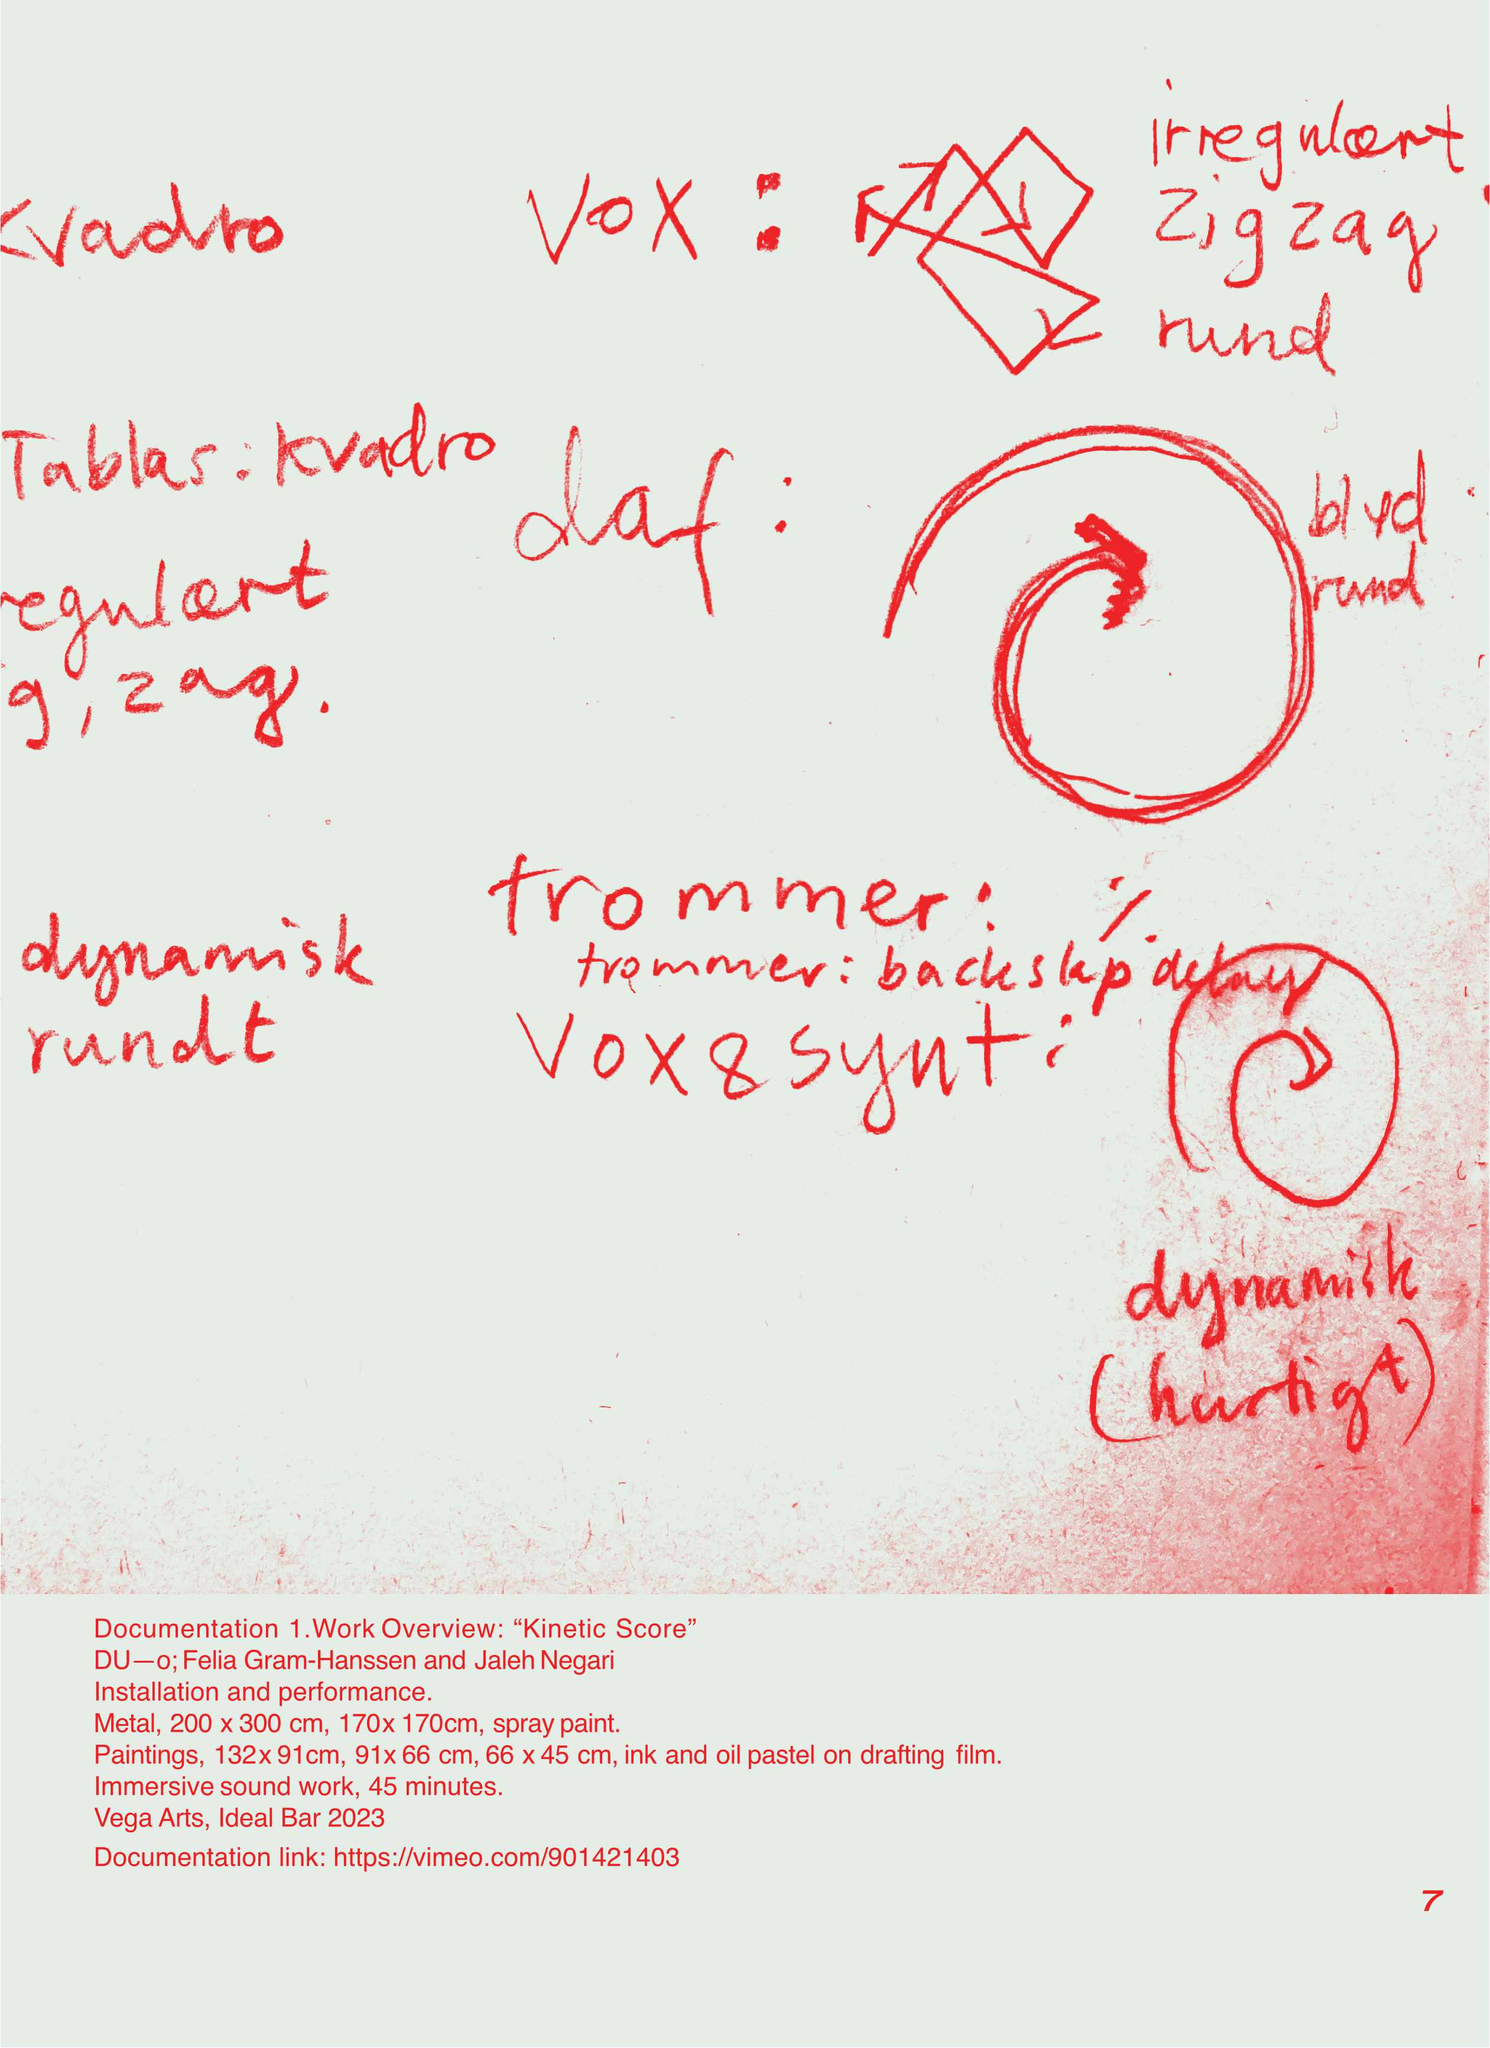 kvadro
VOX:
irregulært
zigzag
rund
Tablas: kvadro
daf:
blød
rund
regulært
g, zag.
trommer: %
trommer: backslap delay
dynamisk
rundt
Vox & synt:
dynamisk
(hurtigt)
Documentation 1. Work Overview: “Kinetic Score”
DU—o; Felia Gram-Hanssen and Jaleh Negari
Installation and performance.
Metal, 200 x 300 cm, 170x 170cm, spray paint.
Paintings, 132x 91cm, 91x 66 cm, 66 x 45 cm, ink and oil pastel on drafting film.
Immersive sound work, 45 minutes.
Vega Arts, Ideal Bar 2023
Documentation link: https://vimeo.com/901421403
7